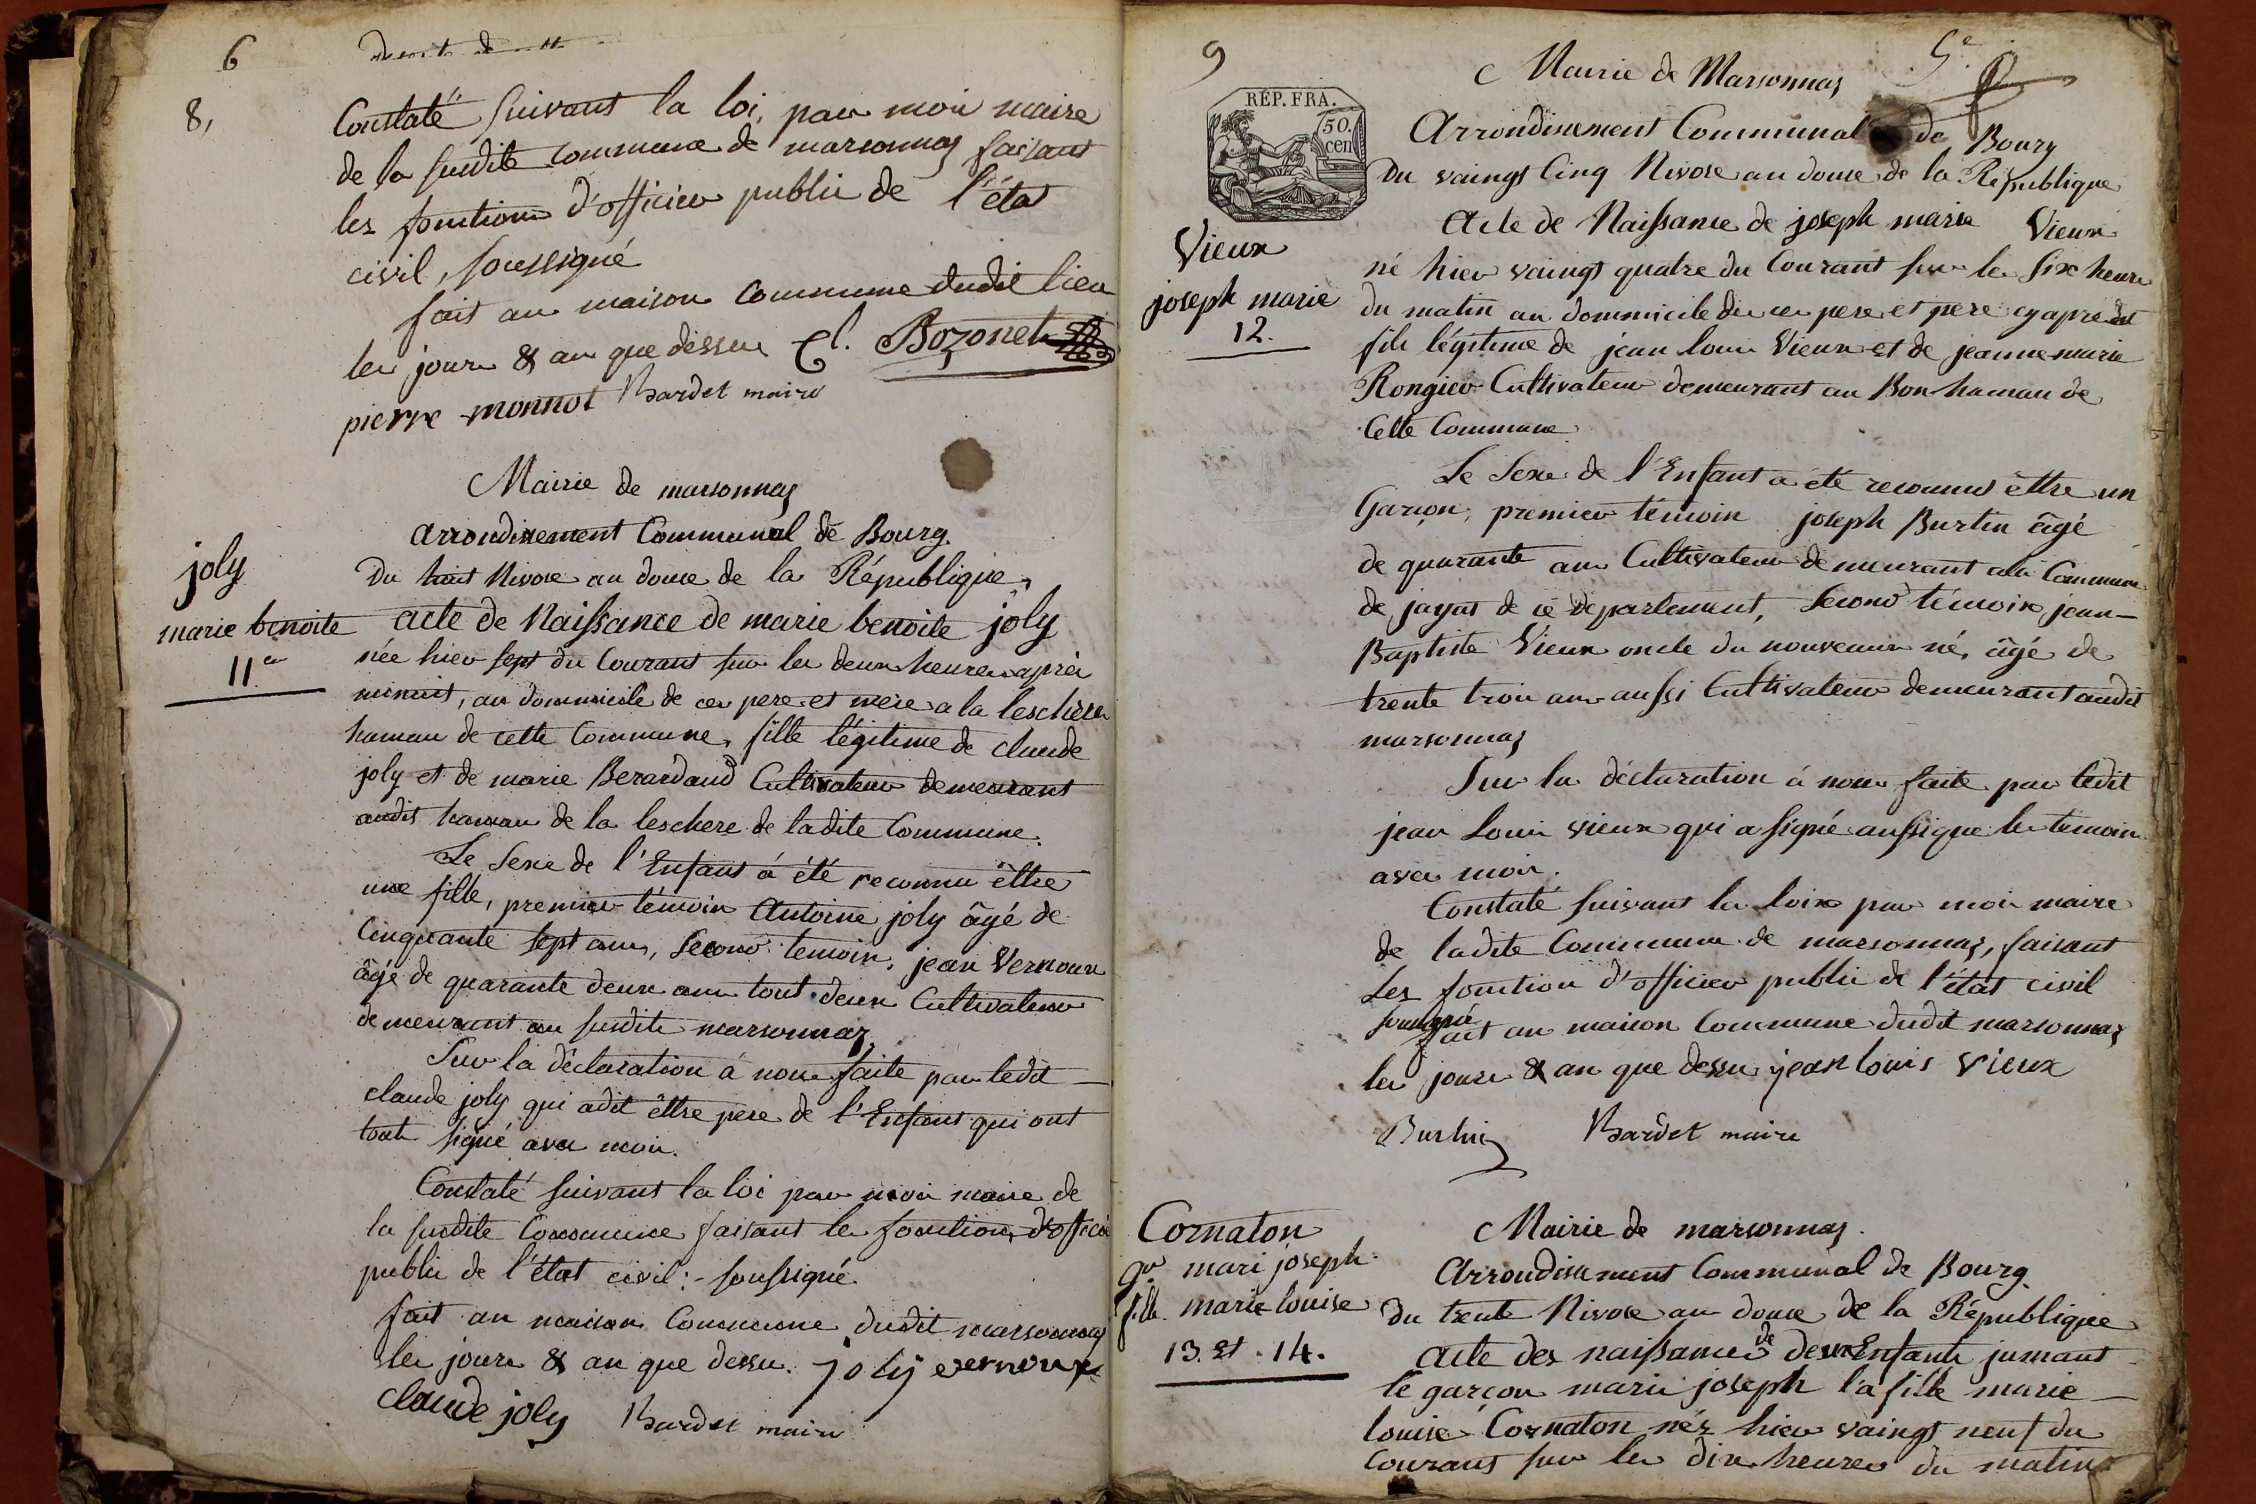 6
8,
Constaté suivant la loi, par moi maire
de la susdite commune de marsonnas faisant
les fonctions d'officier public de l'état
civil, soussigné
fait en maison commune dudit lieu
les jours & an que dessus Cl. Bozonet
pierre monnot Bardet maire
Mairie de marsonnas
arrondissement Communal de Bourg.
joly
marie benoite
11e
Du huit Nivose an douze de la République,
acte de Naissance de marie benoite joly
née hier sept du Courant sur les deux heures après
minuit, au dommicile de ces pere et mere a la leschere
hamau de cette Commune, fille légitime de claude
joly et de marie Berardand Cultivateur demeurant
audit hamau de la leschere de ladite Commune.
Le Sexe de l'Enfant á été reconnu être
une fille, premier témoin Antoine joly âgé de
Cinquante sept ans, second temoin, jean Vernoux
âgé de quarante deux ans tout deux Cultivateur
demeurant au susdite marsonnas,
Sur la déclaration á nous faite par ledit
claude joly qui adit être pere de l'Enfant qui ont
tout signé avec moi.
Constaté suivant la loi par moi maire de
la susdite Commune faisant les fonctions d'officier
public de l'état civil :- soussigné
fait en maison Commune dudit marsonnas
les jours & an que dessus. joly vernoux
claude joly Bardet maire
9
5e
Mairie de Marsonnas
RÉP. FRA.
50.
cen
Arrondissement Communal de Bourg
Du vaingt Cinq Nivose an douze de la République
Acte de Naissance de joseph marie Vieux
Vieux
joseph marie
12.
né hier vaingt quatre du Courant sur les six heures
du matin au dommicile de ces pere et pere cy apres dit
fils légitime de jean louis Vieux et de jeanne marie
Rongier Cultivateur demeurant au Bon hamau de
Cette Commune
Le Sexe de l'Enfant a été reconnu être un
Garçon, premier témoin joseph Burtin âgé
de quarante ans Cultivateur demeurant au Commune
de jayat de ce département, Second témoin jean-
Baptiste Vieux oncle du nouveaux né, âgé de
trente trois ans aussi Cultivateur demeurant audit
marsonnas
Sur la déclaration á nous faite par ledit
jean Louis vieux qui a signé aussi que les temoins
avec moi.
Constaté suivant la loix par moi maire
de ladite Commune de marsonnas, faisant
Les fonction d'officier public de l'état civil
soussigné
fait an maison Commune dudit marsonnas
les jours & an que dessus jean louis vieux
Burtin Bardet maire
Cornaton
gon mari joseph
fille marie louise
13. et . 14.
Mairie de marsonnas.
Arrondissement Communal de Bourg
du trente Nivose an douze de la République
acte des naissances de deux Enfants jumaut
le garçon marie joseph la fille marie
louise Cornaton nés hier vaingt neuf du
Courant sur les dix heures du matin